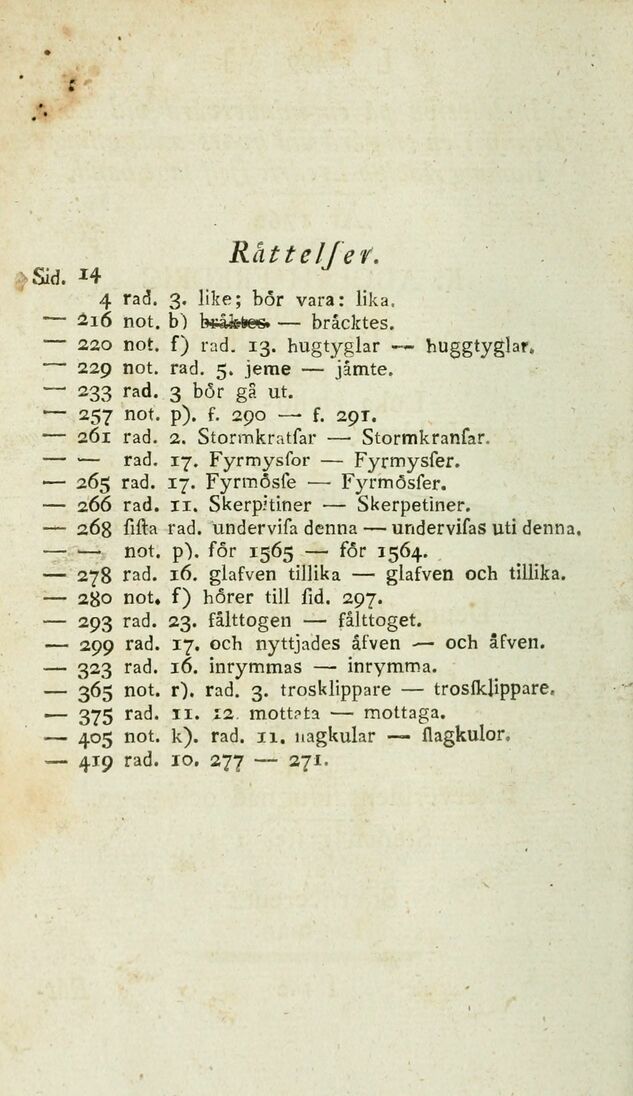 Råttelſer.
Sid. 14
4 rad. 3. like; bör vara: lika.
— 216 not. b) bråktes. — bråcktes.
— 220 not. f) rad. 13. hugtyglar — huggtyglar.
— 229 not. rad. 5. jeme — jåmte.
— 233 rad. 3 bör gå ut.
— 257 not. p). f. 290 — f. 291.
— 261 rad. 2. Stormkratſar — Stormkranſar.
— — rad. 17. Fyrmysſor — Fyrmysſer.
— 265 rad. 17. Fyrmösſe — Fyrmösſer.
— 266 rad. 11. Skerpitiner — Skerpetiner.
— 268 ſiſta rad. underviſa denna — underviſas uti denna.
— — not. p). för 1565 — för 1564.
— 278 rad. 16. glafven tillika — glafven och tillika.
— 280 not. f) hörer till ſid. 297.
— 293 rad. 23. fålttogen — fålttoget.
— 299 rad. 17. och nyttjades åfven — och åfven.
— 323 rad. 16. inrymmas — inrymma.
— 365 not. r). rad. 3. trosklippare — trosſklippare.
— 375 rad. 11. 12. mottata — mottaga.
— 405 not. k). rad. 11. nagkular — ſlagkulor.
— 419 rad. 10. 277 — 271.